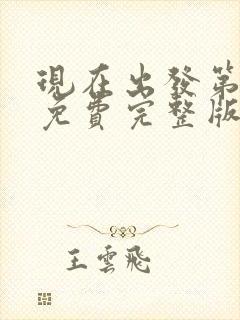 現在出發第
免費完整版
王雲飛